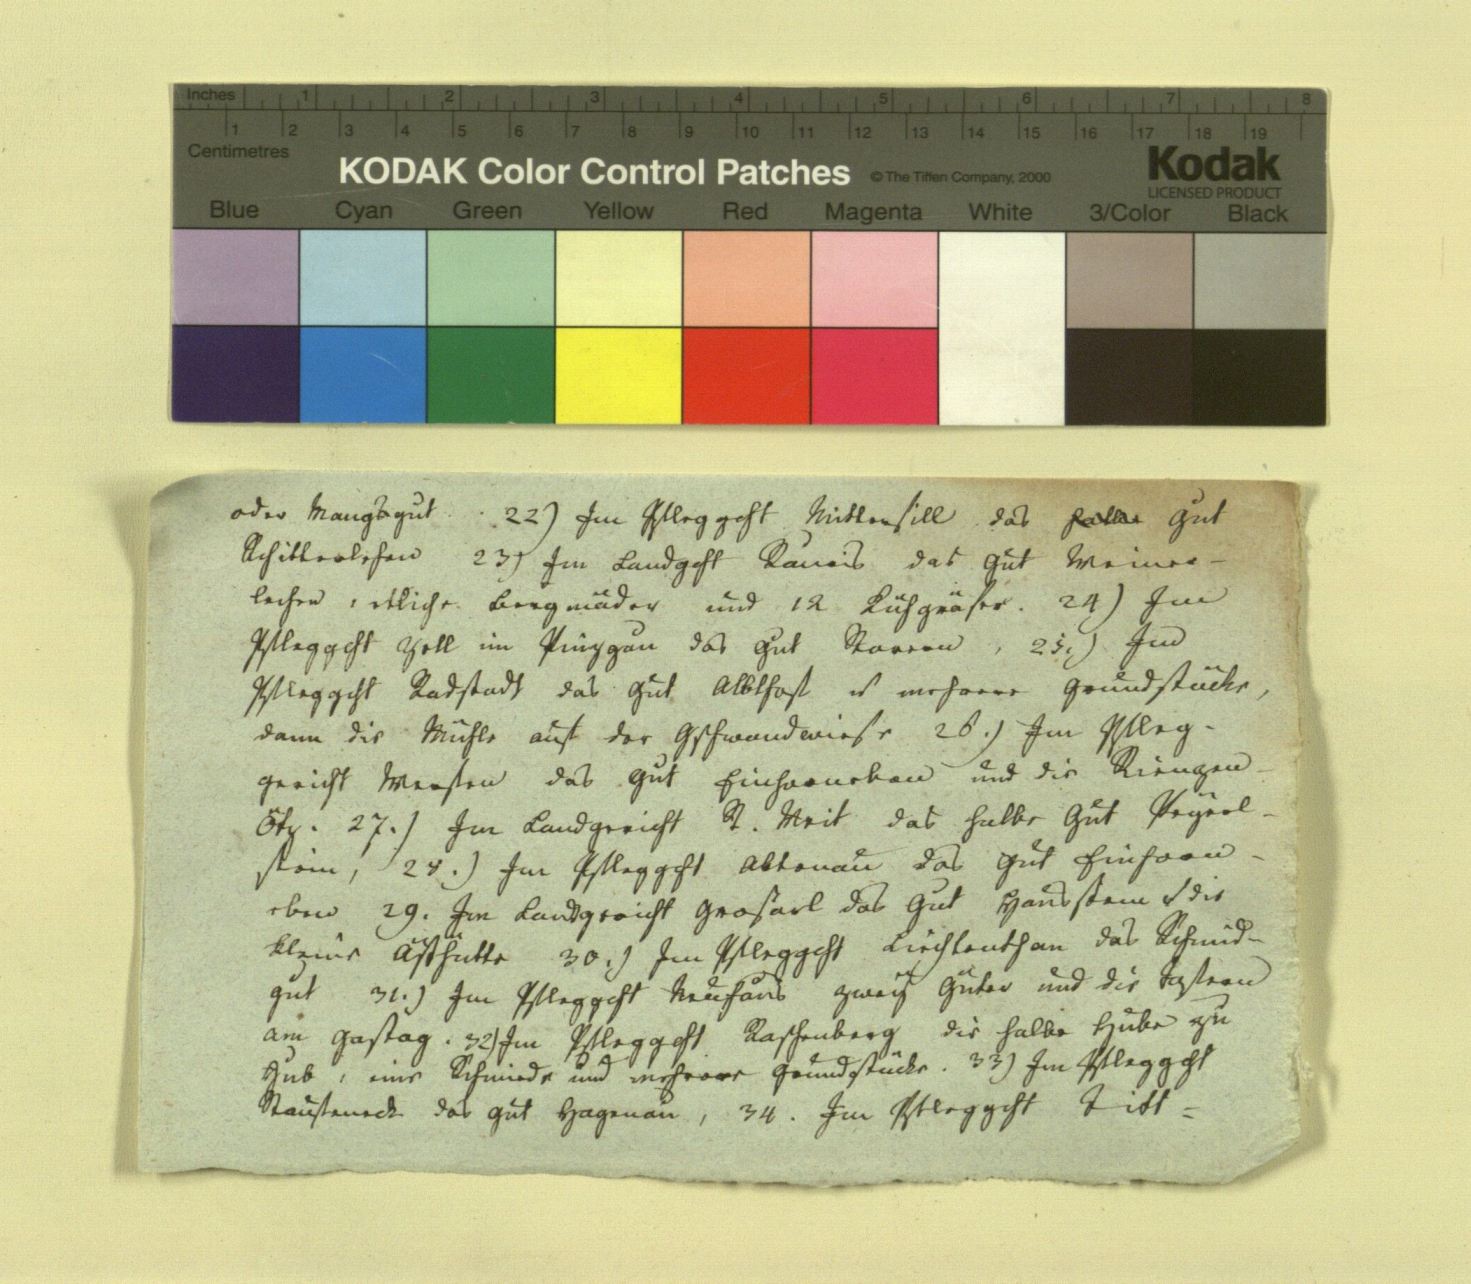 Inches 1 2 3 4 5 6 7 8
1 2 3 4 5 6 7 8 9 10 11 12 13 14 15 16 17 18 19
Centimetres
KODAK Color Control Patches © The Tiffen Company, 2000 Kodak
LICENSED PRODUCT
Blue Cyan Green Yellow Red Magenta White 3/Color Black
oder Mangsgut 22) Im Pfleggcht Mittersill das halbe Gut
Schitterlehen 23) Im Landgcht Rauris das Gut Weiner-
lechen, etliche Bergmäder und 12 Kühgräser. 24) Im
Pfleggcht Zell im Pinzgau das Gut Starern, 25.) Im
Pfleggcht Radstadt das Gut mehrere Grundstücke,
dann die Mühle auf der Gschwandwiese 26.) Im Pfleg-
gericht Werfen das Gut Einhorneben und die
Ötz. 27.) Im Landgericht St. Veit das halbe Gut
stein, 28.) Im Pfleggcht Abtenau das Gut Einhorn-
eben 29. Im Landgericht Grosarl das Gut die
kleine Asthütte 30.) Im Pfleggcht Liechtenthan das Schmid-
gut 31.) Im Pfleggcht Neuhaus zwey Güter und die Tafern
am Gastag. 32) Im Pfleggcht Raschenberg die halbe Hube zu
Hub, eine Schmiede und mehrere Grundstücke. 33) Im Pfleggcht
Stauffeneck das Gut Hagenau, 34. Im Pfleggcht Titt=